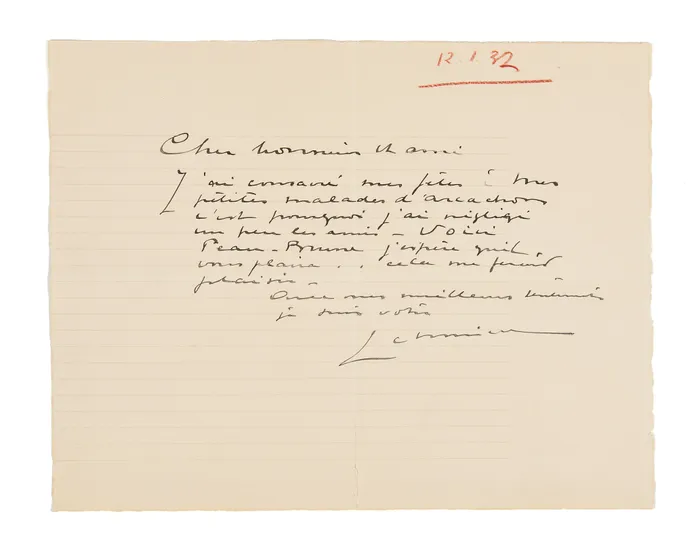 12.1.32
Cher monsieur et ami
J'ai consacré mes fêtes à mes
petites malades d'arcachon
c'est pourquoi j'ai négligé
un peu les amis – Voici
Peau-Brune j'espère qu'il
vous plaira . . cela me ferait
plaisir –
Avec mes meilleurs sentiments
je suis votre